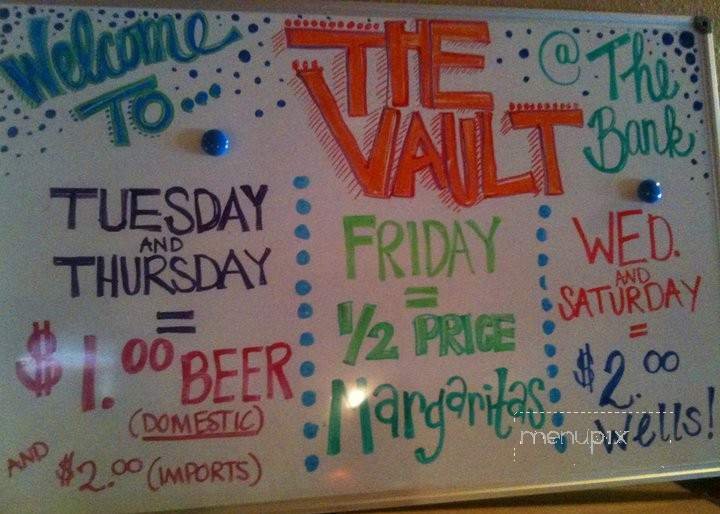 Welcome
To...
THE
VAULT
@ The
Bank
TUESDAY
AND
THURSDAY
=
$1.00 BEER
(DOMESTIC)
AND $2.00 (IMPORTS)
FRIDAY
=
1/2 PRICE
Margaritas
WED.
AND
SATURDAY
=
$2.00
Wells!
menupix